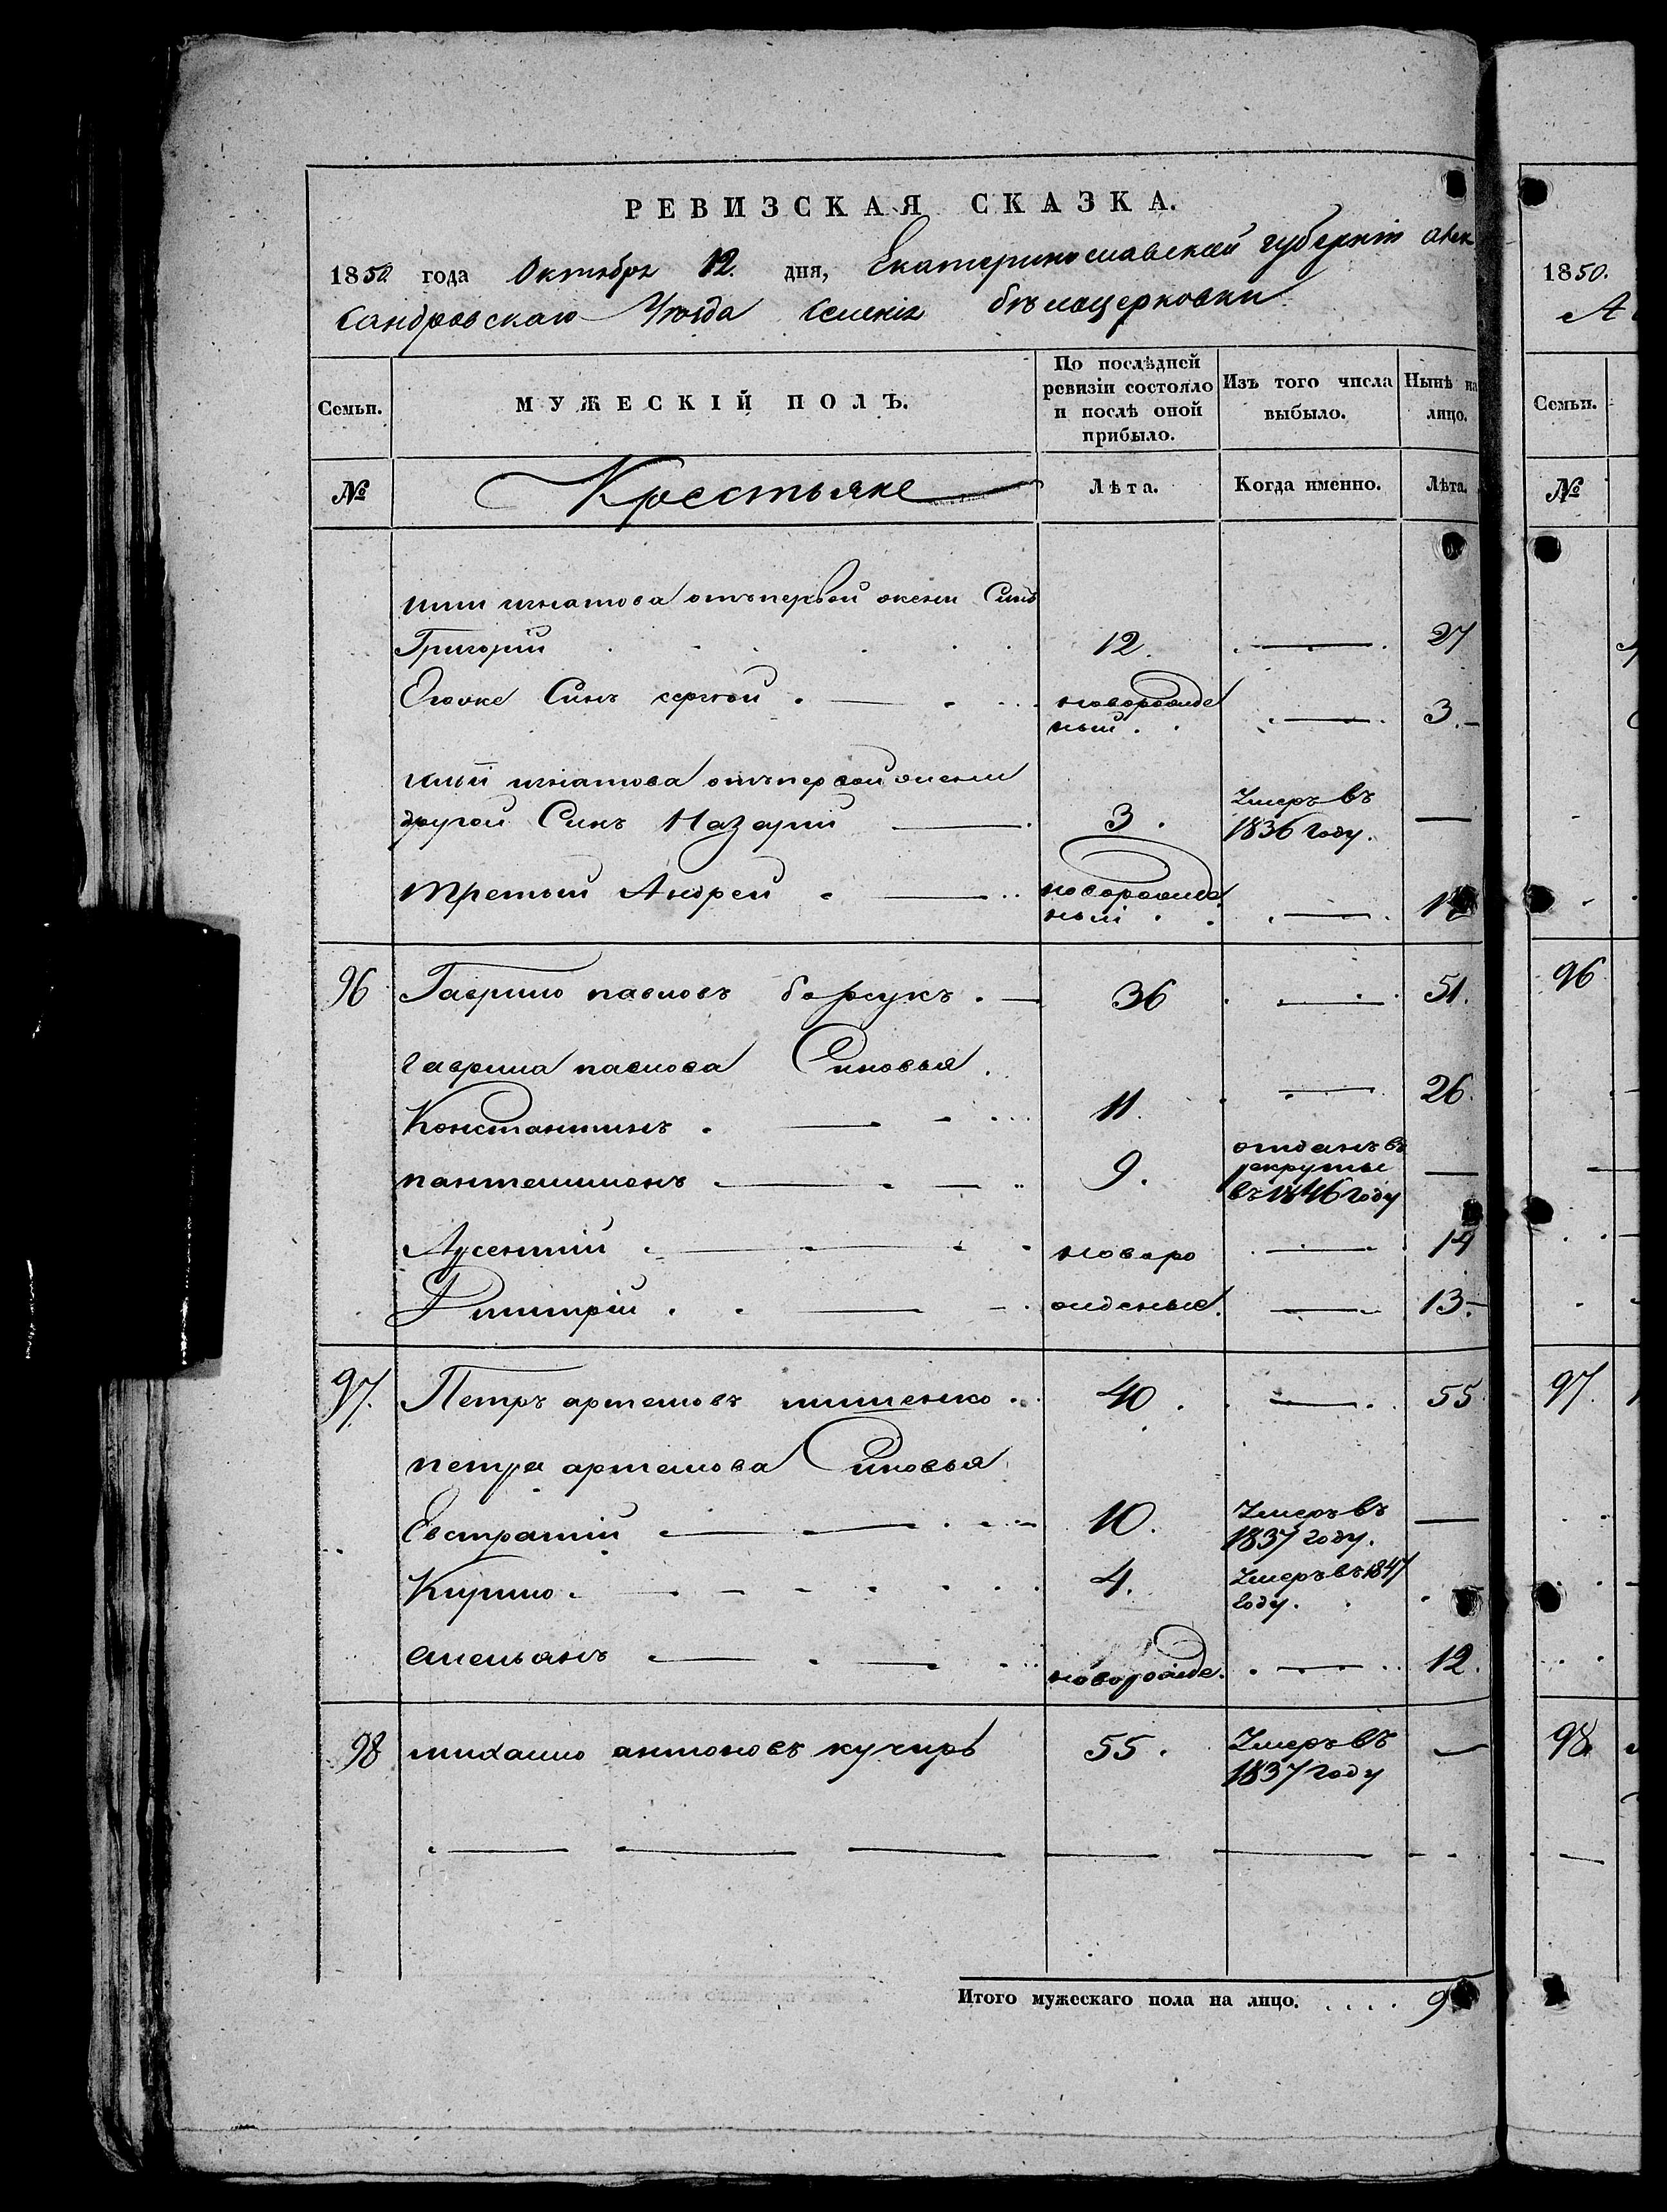 РЕВИЗСКАЯ СКАЗКА.
1850 года Октября 12. дня, Екатеринославской губернiи Алек
сандровскаго Уѣзда Селенiя бѣлоцерковки
Семьи. МУЖЕСКIЙ ПОЛЪ. По послѣдней ревизiи состояло и послѣ оной прибыло. Изъ того числа выбыло. Нынѣ на лицо.
№ Крестьяне Лѣта. Когда именно. Лѣта.
игнатова отъ первой жени Синъ
Григорiй 12. 27
Егоже Синъ сергей новорожде 3.
ный
игнатова отъ первой жени
другой Синъ Назарiй 3. Умеръ въ 1836 году.
третий Андрей новорожде
ный
96 Гаврило павловъ борсукъ. 36 51.
гаврила павлова Синовья.
Константинъ. 11. 26.
пантелимонъ 9. отданъ въ рекруты въ 1846 году
Арсентiй новоро 14
Дмитрiй жденые. 13.
97. Петръ артемовъ мишенко 40. 55
петра артемова Синовья
Евстратiй 10. Умеръ въ 1837 году.
Кирило 4. Умеръ въ 1847 году.
емельянъ новорожде. 12.
98 михаило антоновъ кучиръ 55. Умеръ въ 1837 году
Итого мужескаго пола на лицо. .... 9
1850.
А
Семьи.
№
96
97.
98.